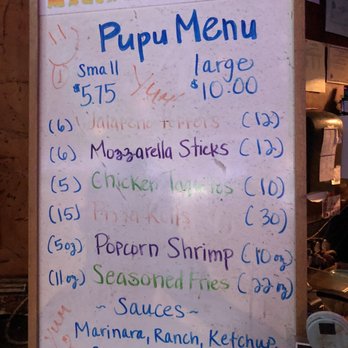 Pupu Menu
small large
$5.75 $10.00
(6) Jalapeno Poppers (12)
(6) Mozzarella Sticks (12)
(5) Chicken (10)
(15) Pizza Rolls (30)
(5oz) Popcorn Shrimp (10oz)
(11oz) Seasoned Fries (22oz)
~ Sauces ~
Marinara, Ranch, Ketchup